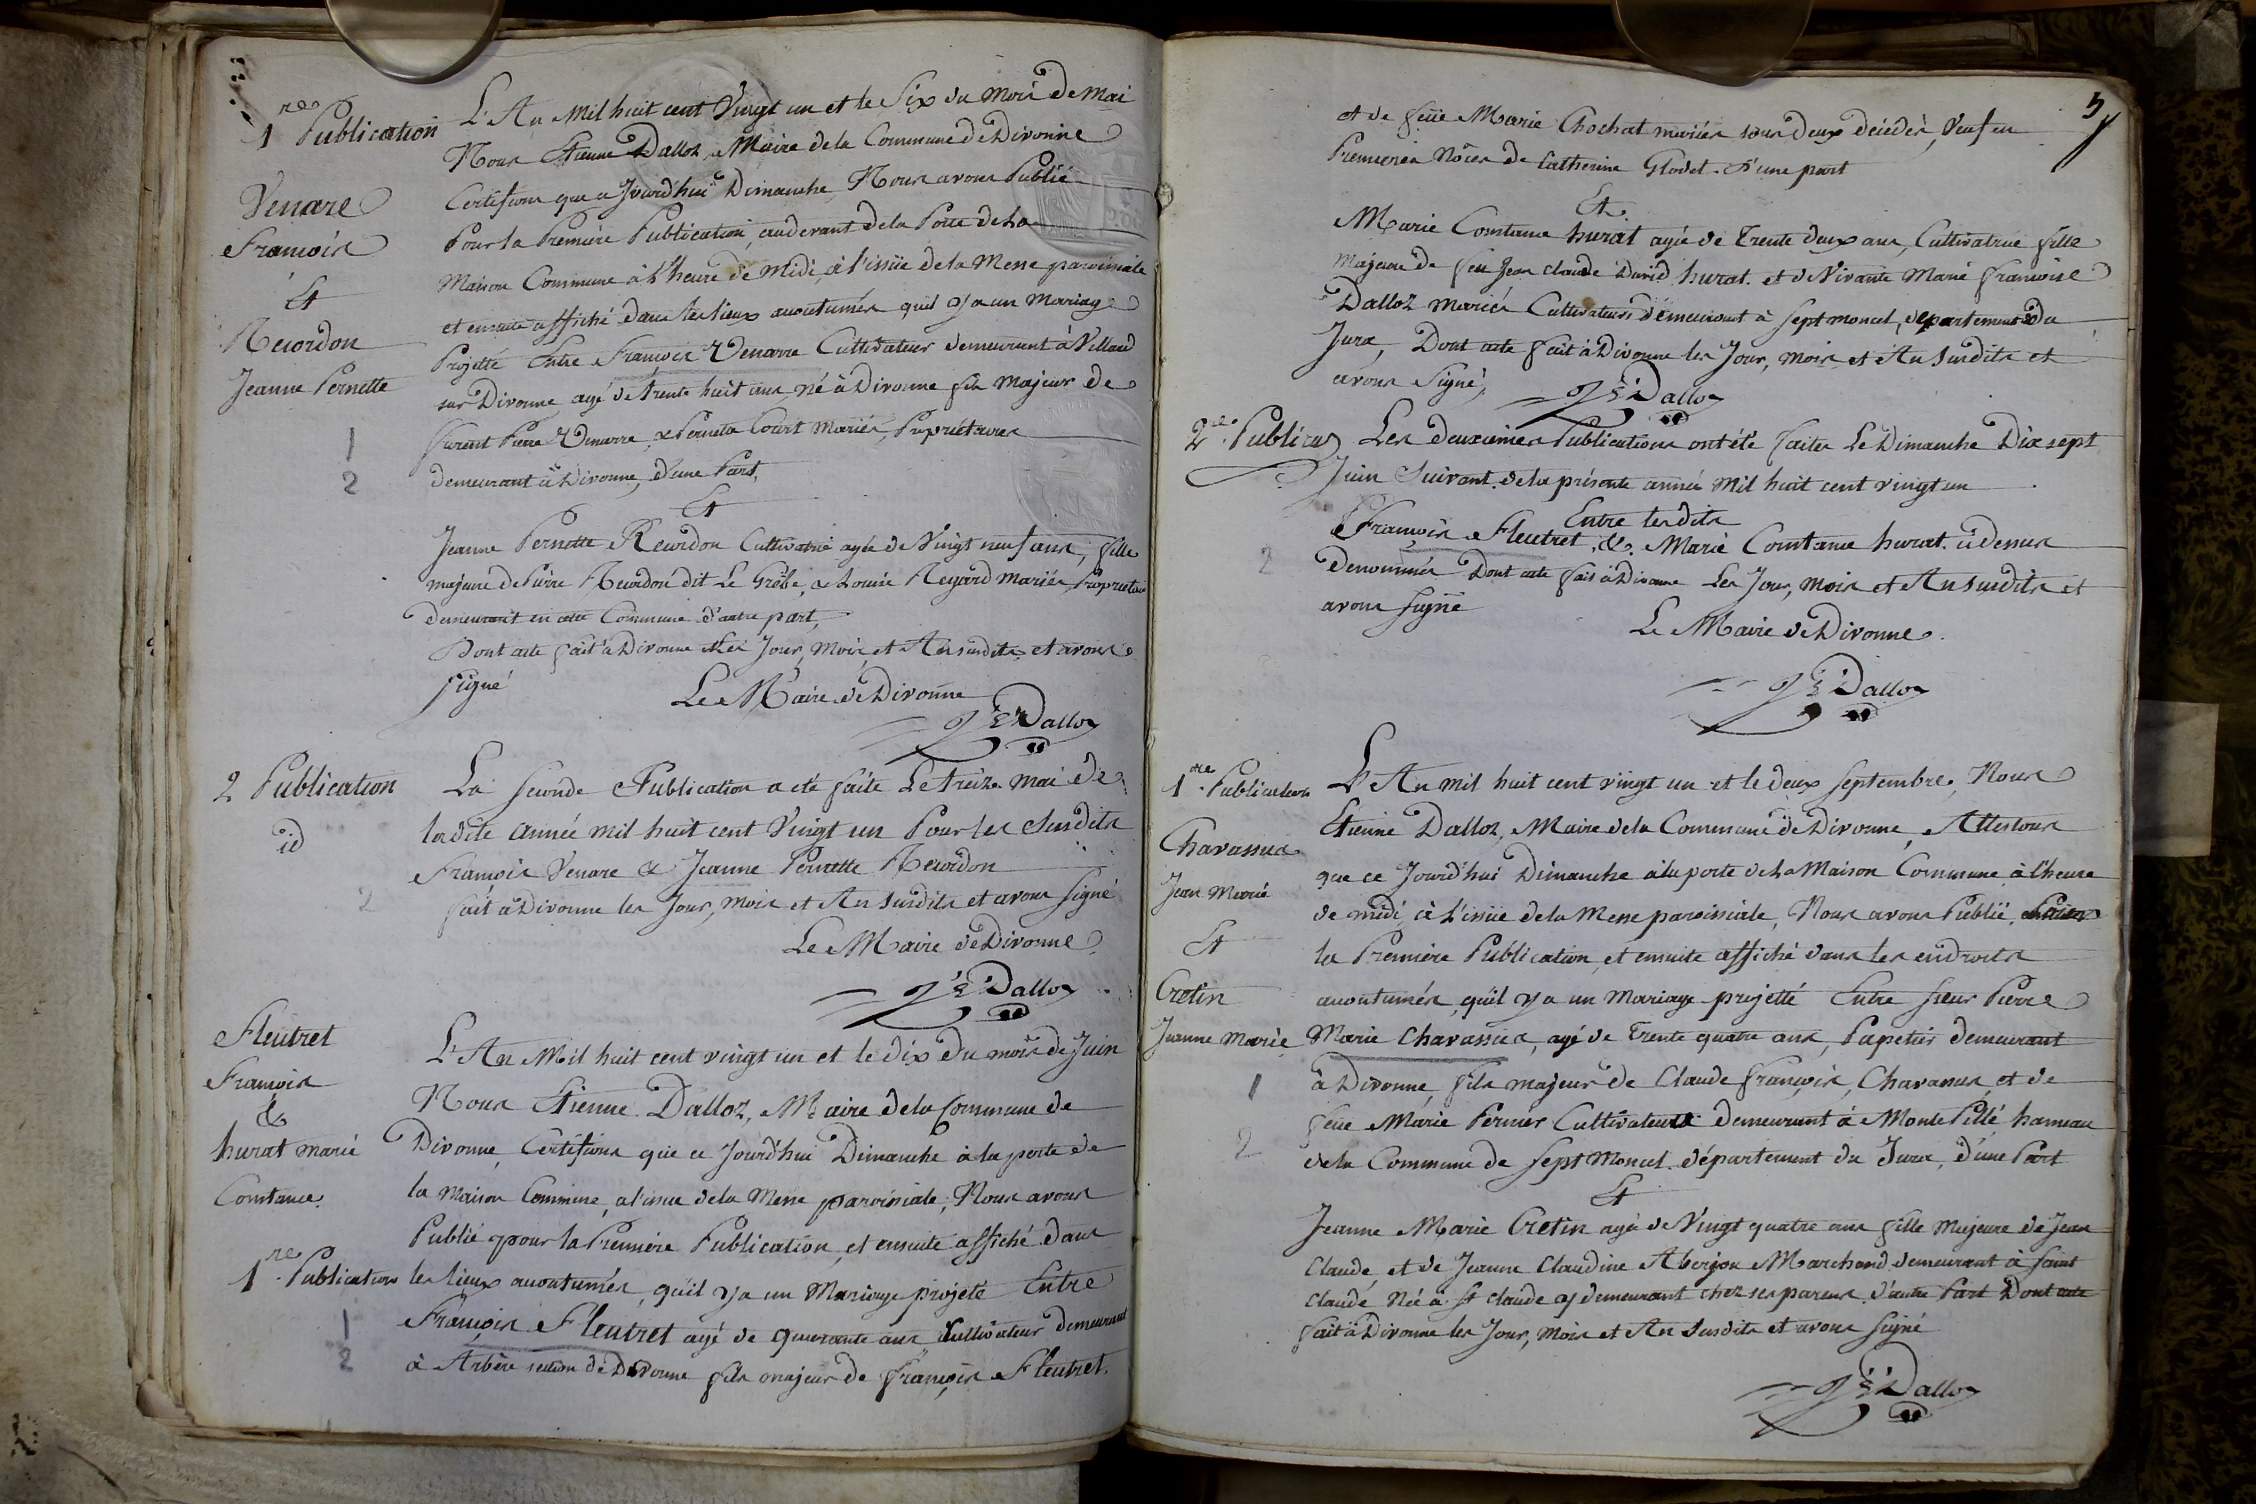 1re Publication
Venare
François
Et
Recordon
Jeanne Pernette
1
2
L'An Mil huit cent Vingt un et le Six du Mois De Mai
Nous Etienne Dalloz, Maire de la Commune De Divonne
Certifions que aJourd'hui Dimanche Nous avons Publié
Pour la Première Publication, au devant de la Porte de La
Maison Commune à l'heure de Midi, à l'issüe de la Messe paroissiale
et ensuite affiché dans les lieux accoutumés quil y a un Mariage
Projetté Entre François Venarre Cultivateur demeurant à Villard
sur Divonne agé de trente huit ans né à Divonne fils Majeur de
Pierre Venarre, & Perneta Court Mariés, Propriétaires
demeurant à Divonne, d'une Part,
Et
Jeanne Pernette Recordon Cultivatrice agée de Vingt neuf ans, fille
majeure de Pierre Recordon dit Le Grèbe, & Louise Regard Mariés, Propriétaires
demeurant en cette Commune d'autre part,
Dont acte fait à Divonne Les Jour, Mois, et An susdits, et avons
signé
Le Maire de Divonne
Je Dalloz
2 Publication
id
2
La seconde Publication a été faite Le treize mai de
ladite année mil huit cent Vingt un Pour les Susdits
François Venare & Jeanne Pernette Recordon
fait à Divonne les Jour, Mois et An Susdits et avons signé
Le Maire de Divonne
Je Dalloz
Fleutret
François
&
hurat marie
Constance.
1re Publication
1
2
L'An Mil huit cent vingt un et le dix du mois de Juin
Nous Etienne Dalloz, Maire de la Commune de
Divonne, Certifions que ce Jourd'hui Dimanche à la porte de
la Maison Commune, a l'issue de la Messe paroissiale, Nous avons
Publié pour la Première Publication, et ensuite affiché dans
les lieux accoutumés, qu'il y a un Mariage projeté Entre
François Fleutret agé de quarante ans Cultivateur demeurant
à Arbère section de Divonne fils majeur de François Fleutret.
5
et de feüe Marie Chochat mariés tous deux décédés, Veuf en
Premieres Nôces de Catherine Glodet. D'une part
Et
Marie Constance hurat agée de Trente deux ans, Cultivatrice fille
Majeure de feu Jean Claude David hurat. et de Vivante Marie françoise
Dalloz mariés Cultivateurs demeurant à Sept moncel, departement du
Jura, Dont acte fait à Divonne les Jour, mois et An Susdits et
avons Signé,
Je Dalloz
2e Publicaon
2
Les deuxièmes Publications ont été faites Le Dimanche Dix sept
Juin Suivant de la présente année Mil huit cent vingt un
Entre lesdits
François Fleutret, & Marie Constance hurat. ci dessus
Denommés Dont acte fait à Divonne Les Jour, mois et An Susdits et
avons signé
Le Maire de Divonne.
Je Dalloz
1re Publication
Chavassus
Jean Marie
Et
Cretin
Jeanne Marie
1
2
L'An mil huit cent vingt un et le deux septembre, Nous
Etienne Dalloz, Maire de la Commune de Divonne, Attestons
que ce Jourd'hui Dimanche à la porte de La Maison Commune à l'heure
de midi, à l'issüe de la Messe paroissiale, Nous avons Publié,
la Première Publication, et ensuite affiché dans les endroits
accoutumés, qu'il y a un Mariage projetté Entre Sieur Pierre
Marie Chavassus, agé de Trente quatre ans, Papetier demeurant
à Divonne, fils majeur de Claude françois, Chavassus, et de
feue Marie Pernier Cultivateurs demeurant à Monte Pillé, hameau
de la Commune de Sept Moncel département du Jura, d'une Part
Et
Jeanne Marie Cretin agée de Vingt quatre ans fille Majeure de Jean
Claude, et de Jeanne Claudine Aberjon Marchand demeurant à Saint
Claude Née à St Claude y demeurant chez ses parens d'autre Part Dont acte
fait à Divonne les Jour, Mois et An Susdits et avons Signé
Je Dalloz